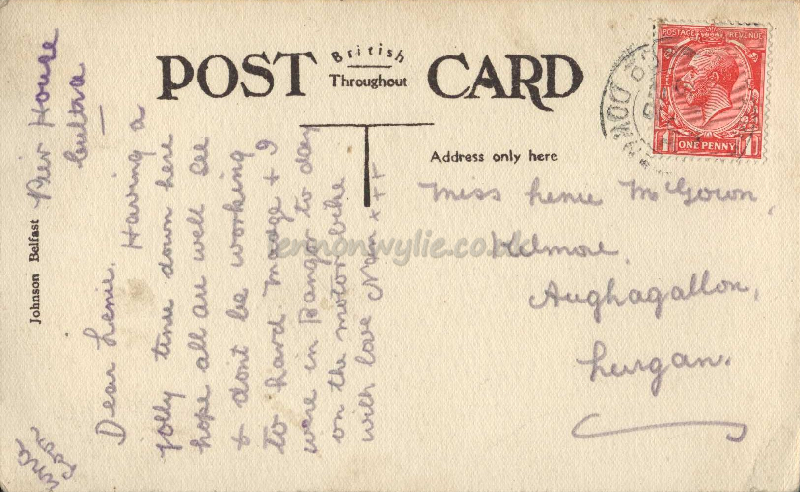 POST CARD
British
Throughout
Address only here
POSTAGE REVENUE
ONE PENNY
1 1
DOWN
Johnson Belfast
Pier House
Cultra
Dear Lenie. Having a
jolly time down here
hope all are well all
& dont be working
to hard. Madge & I
were in Bangor to day
on the motor bike
with love
x x x
Write
soon
Miss Lenie McGown,
Kilmore,
Aughagallon,
Lurgan.
lennonwylie.co.uk